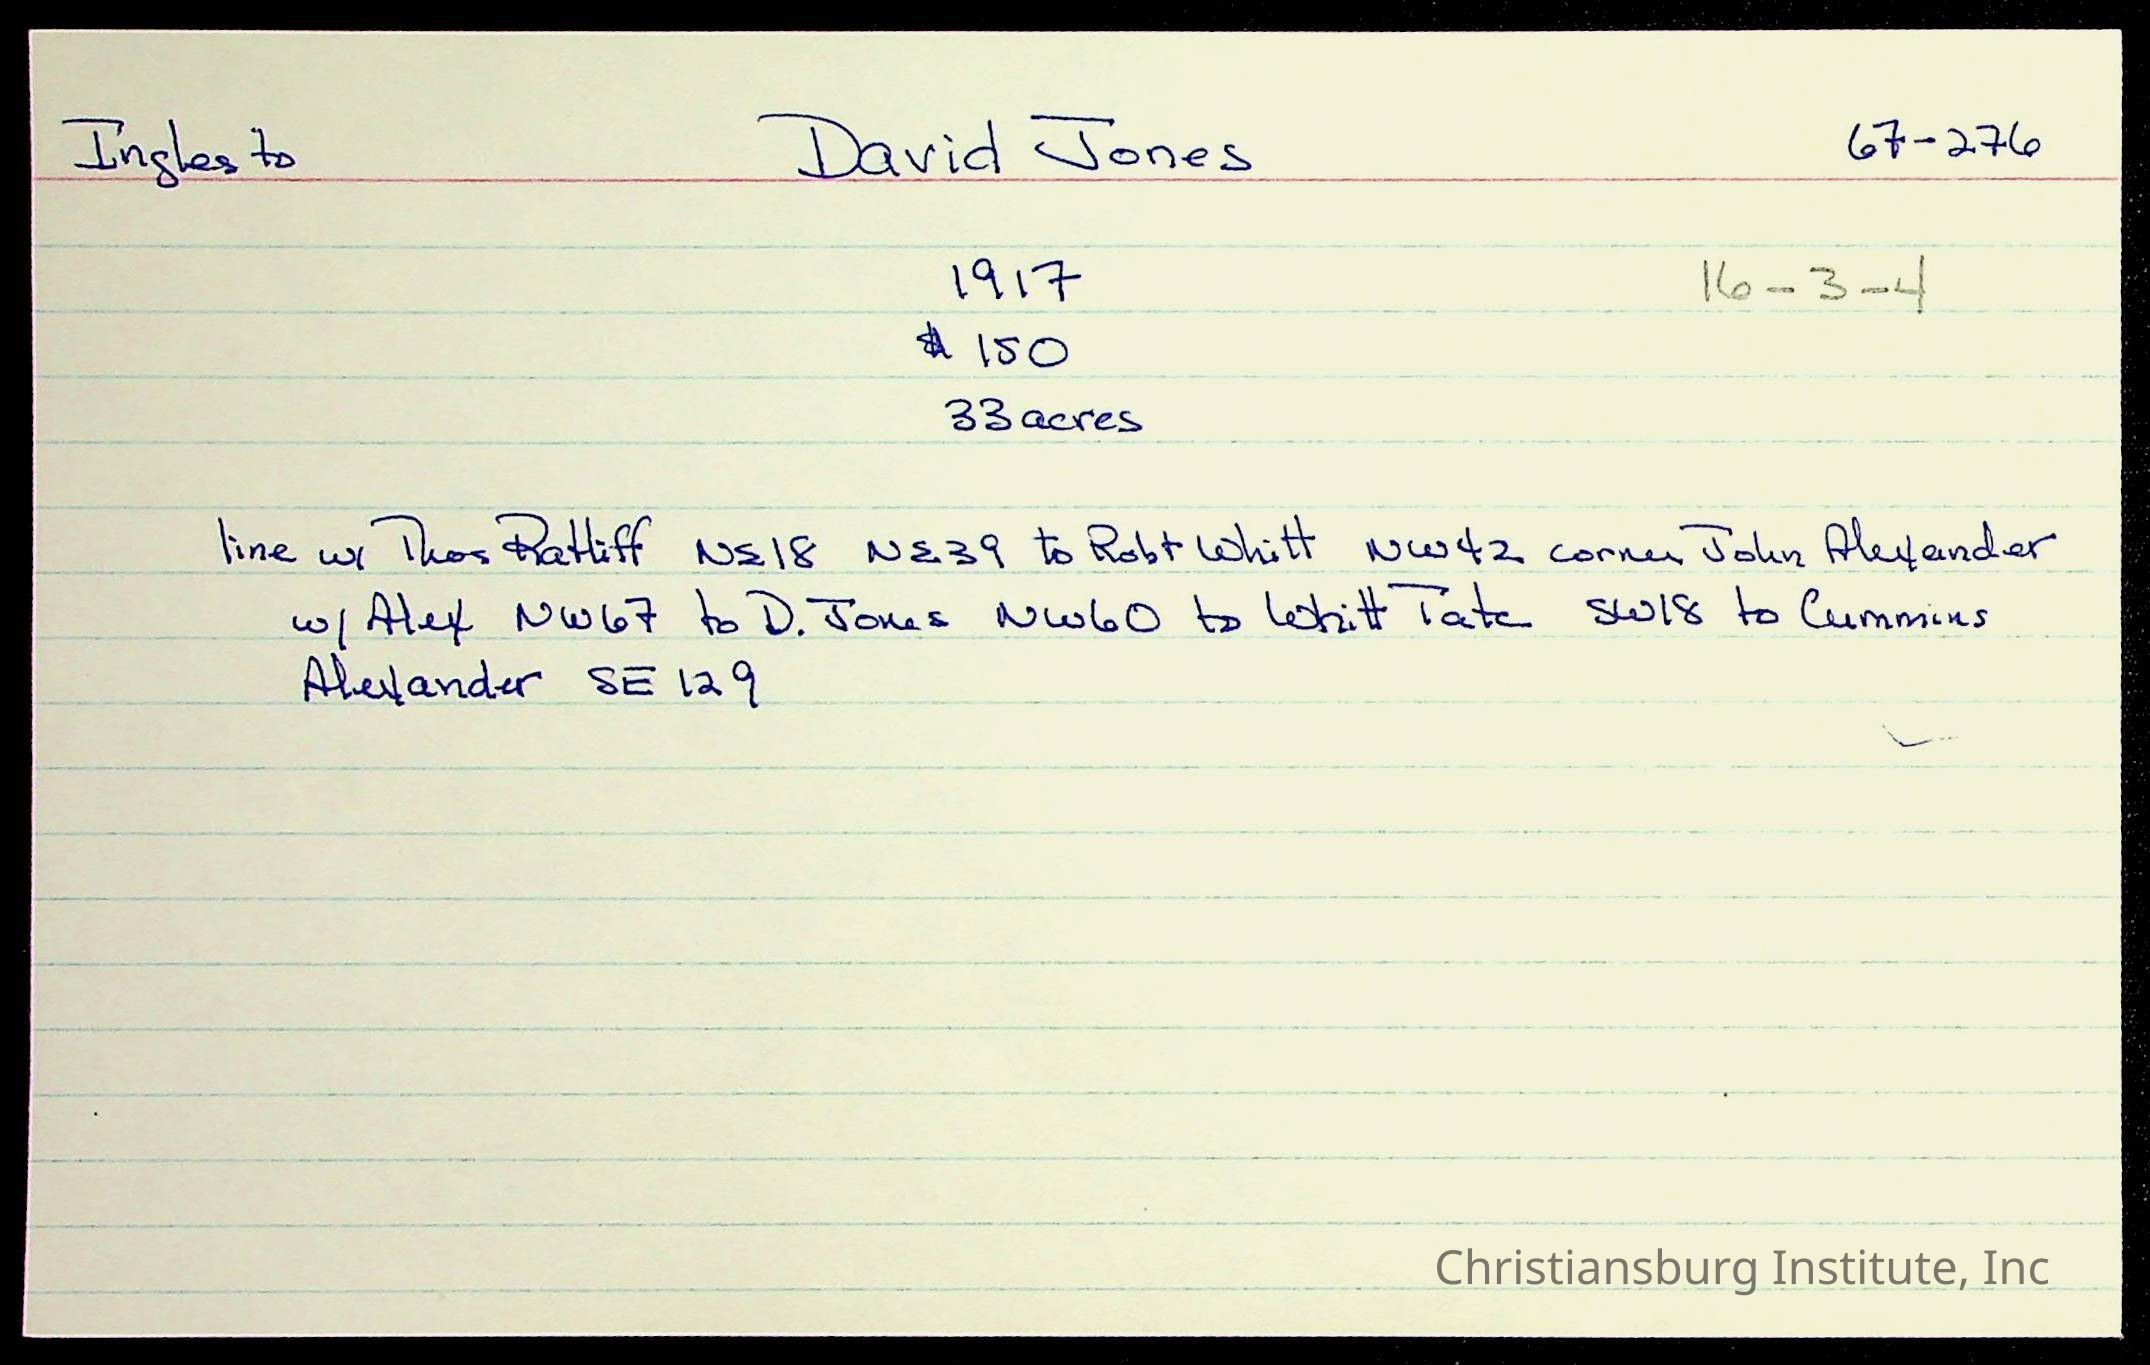 Ingles to David Jones 67-276
1917 16-3-4
$ 150
33 acres
line w/ Thos Ratliff NE18 NE39 to Robt Whitt NW42 corner John Alexander
w/ Alex NW67 to D. Jones NW60 to Whitt Tate SW18 to Cummins
Alexander SE 129
Christiansburg Institute, Inc